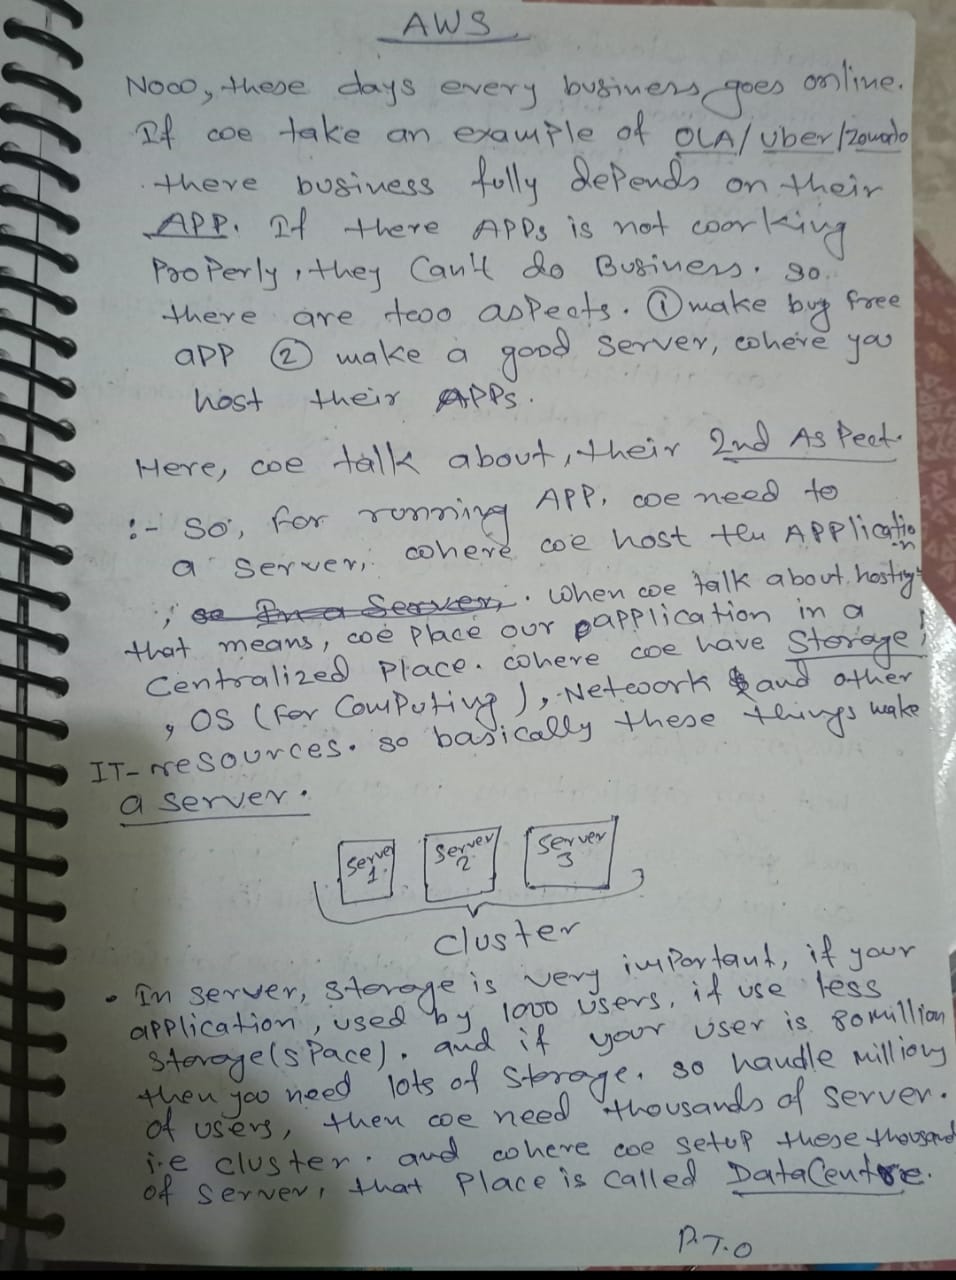 AWS
Now, these days every business goes online.
If we take an example of OLA/Uber/Zomato
there business fully depends on their
APP. If there APPs is not working
Properly, they can't do Business. so
there are two aspects. ① make bug free
app ② make a good server, where you
host their APPs.
Here, we talk about, their 2nd Aspect.
:- So, for running APP, we need to
a server, where we host the Application
; so In a Server, . When we talk about hosting
that means, we place our application in a
Centralized Place. where we have Storage,
, OS (for Computing), Network & and other
IT-resources. so basically these things make
a server.
Server 1
Server 2
Server 3
Cluster
• In server, storage is very important, if your
application, used by 1000 users, if use less
storage(space). and if your user is 80 million
then you need lots of storage. so handle millions
of users, then we need thousands of server.
i.e cluster. and where we setup these thousand
of server, that Place is called DataCentre.
P.T.O